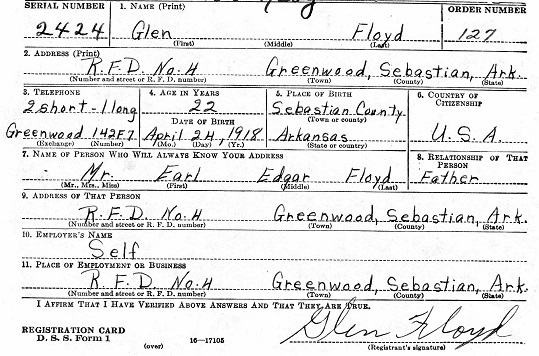 SERIAL NUMBER 1. NAME (Print) ORDER NUMBER
2424 Glen Floyd 127
(First) (Middle) (Last)
2. ADDRESS (Print)
R.F.D. No.4 Greenwood, Sebastian, Ark.
(Number and street or R. F. D. number) (Town) (County) (State)
3. TELEPHONE 4. AGE IN YEARS 5. PLACE OF BIRTH 6. COUNTRY OF CITIZENSHIP
2 short-1 long 22 Sebastian County
DATE OF BIRTH (Town or county)
Greenwood 142F7 April 24, 1918 Arkansas U.S.A.
(Exchange) (Number) (Mo.) (Day) (Yr.) (State or country)
7. NAME OF PERSON WHO WILL ALWAYS KNOW YOUR ADDRESS 8. RELATIONSHIP OF THAT PERSON
Mr. Earl Edgar Floyd Father
(Mr., Mrs., Miss) (First) (Middle) (Last)
9. ADDRESS OF THAT PERSON
R.F.D. No.4 Greenwood, Sebastian, Ark.
(Number and street or R. F. D. number) (Town) (County) (State)
10. EMPLOYER'S NAME
Self
11. PLACE OF EMPLOYMENT OR BUSINESS
R.F.D. No.4 Greenwood, Sebastian, Ark.
(Number and street or R. F. D. number) (Town) (County) (State)
I AFFIRM THAT I HAVE VERIFIED ABOVE ANSWERS AND THAT THEY ARE TRUE.
REGISTRATION CARD Glen Floyd
D. S. S. Form 1 (over) 16—17105 (Registrant's signature)